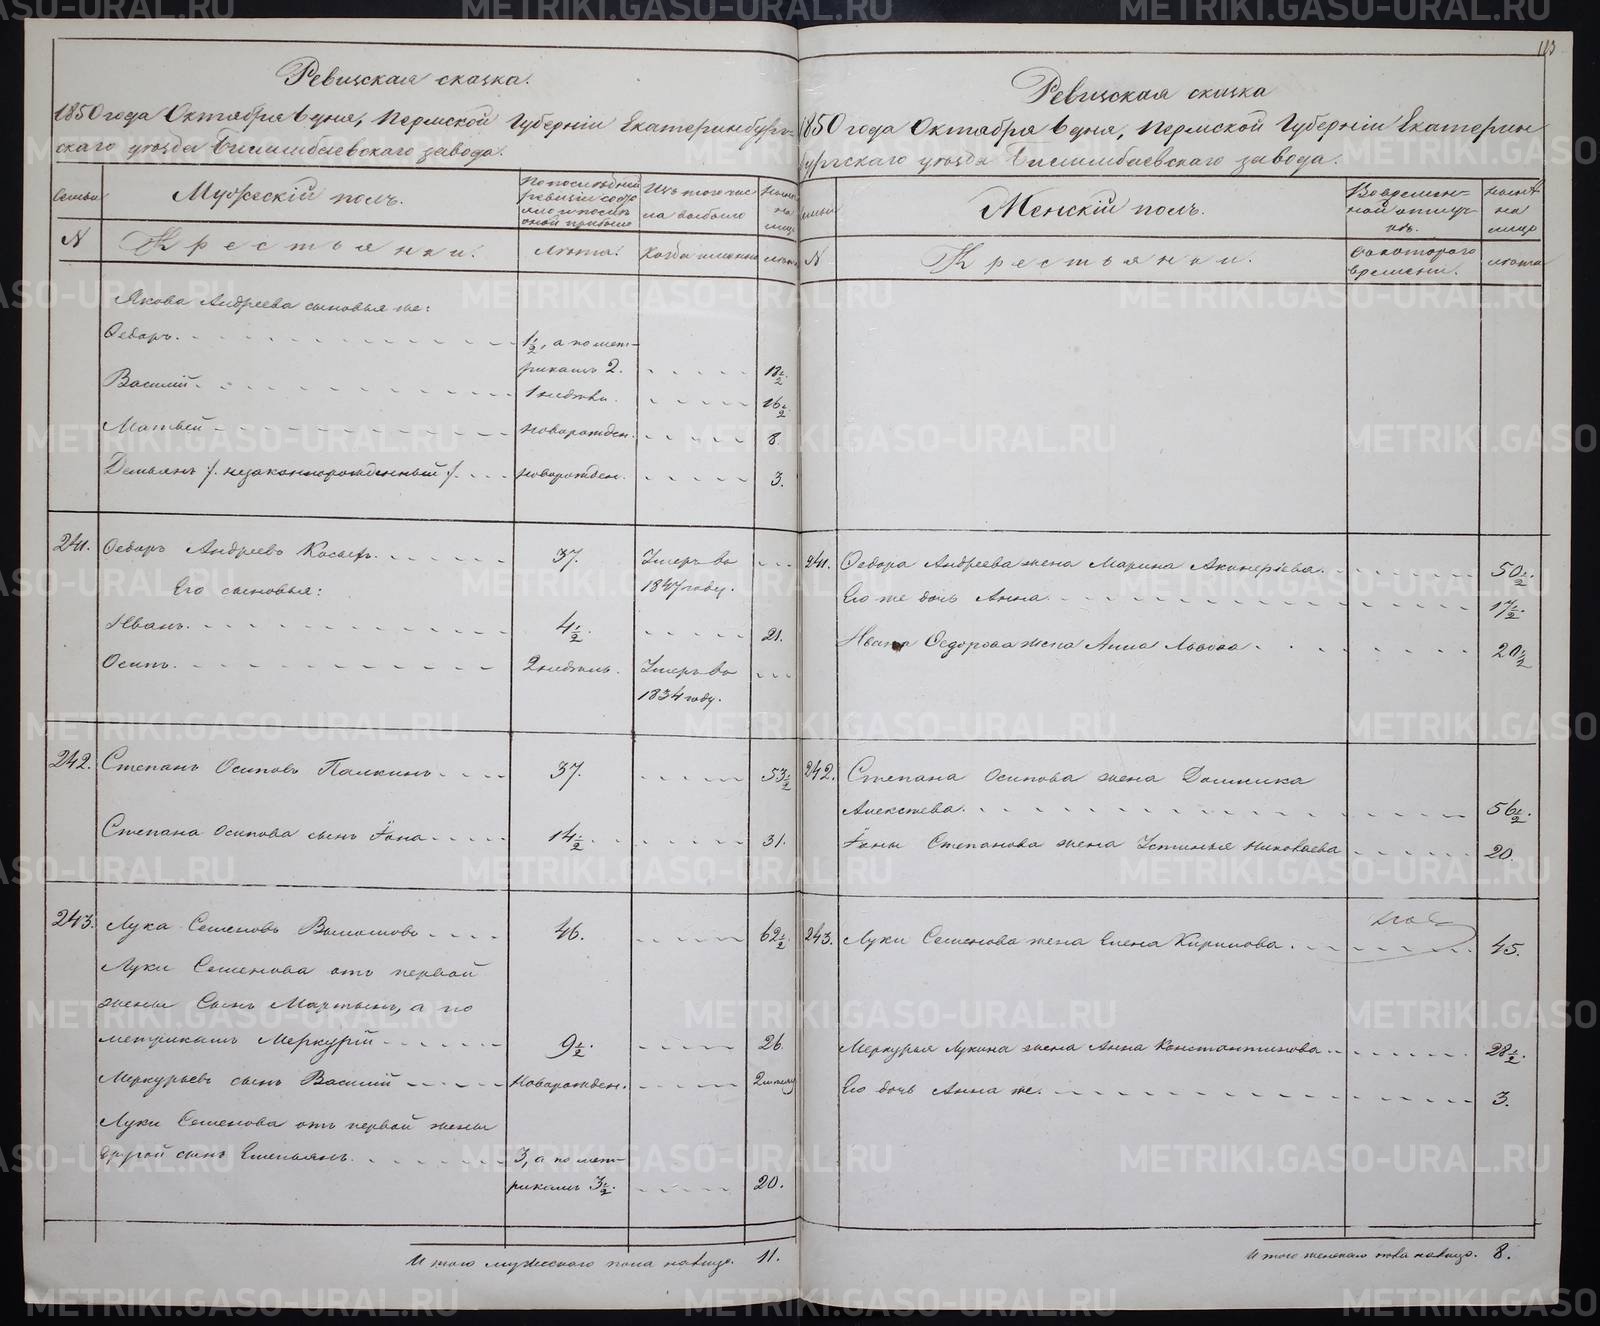 113
Ревизская сказка.
1850 года Октября 6 дня, Пермской Губерніи Екатеринбург-
скаго уѣзда Билимбаевскаго завода.
Семьи
Мужескій полъ.
По послѣдней ревизіи состояло и послѣ оной прибыло
Изъ того числа выбыло
Нынѣ на лицо
№
Крестьянки.
Лѣта.
Когда именно
лѣта
Якова Андреева сыновья же:
Ѳедоръ. 1½, а по мет-
рикамъ 2. 18½.
Василій 1 недѣли. 16½.
Матвей новорожден. 8.
Демьянъ /: незаконнорожденный :/ новорожден. 3.
241. Ѳедоръ Андреевъ Косыхъ. 37. Умеръ въ
1847 году.
Его сыновья:
Иванъ. 4½. 21.
Осипъ. 2 недѣль. Умеръ въ
1834 году.
242. Степанъ Осиповъ Палкинъ 37. 53½
Степана Осипова сынъ Ѳока 14½. 31.
243. Лука Семеновъ 46. 62½.
Луки Семенова отъ первой
жены сынъ Мартынъ, а по
метрикамъ Меркурій 9½. 26.
Меркурьевъ сынъ Василій Новорожден.
Луки Семенова отъ первой жены
другой сынъ Емельянъ. 3, а по мет-
рикамъ 3½. 20.
Итого мужескаго пола налицо. 11.
Ревизская сказка
1850 года Октября 6 дня, Пермской Губерніи Екатерин
бургскаго уѣзда Билимбаевскаго завода.
семьи
Женскій полъ.
Во временной отлучкѣ.
Нынѣ на лицо
№
Крестьянки.
Съ котораго времени.
лѣта
241. Ѳедора Андреева жена Марина 50½.
Его же дочь Анна. 17½.
Ивана Ѳедорова жена Анна Львова 20½
242. Степана Осипова жена Домника
Алексѣева. 56½.
Ѳоки Степанова жена Устинья Николаева 20.
243. Луки Семенова жена Елена Кирилова. 45.
Меркурья Лукина жена Анна Константинова 28½.
Его дочь Анна же. 3.
Итого женскаго пола налицо. 8.
METRIKI.GASO-URAL.RU